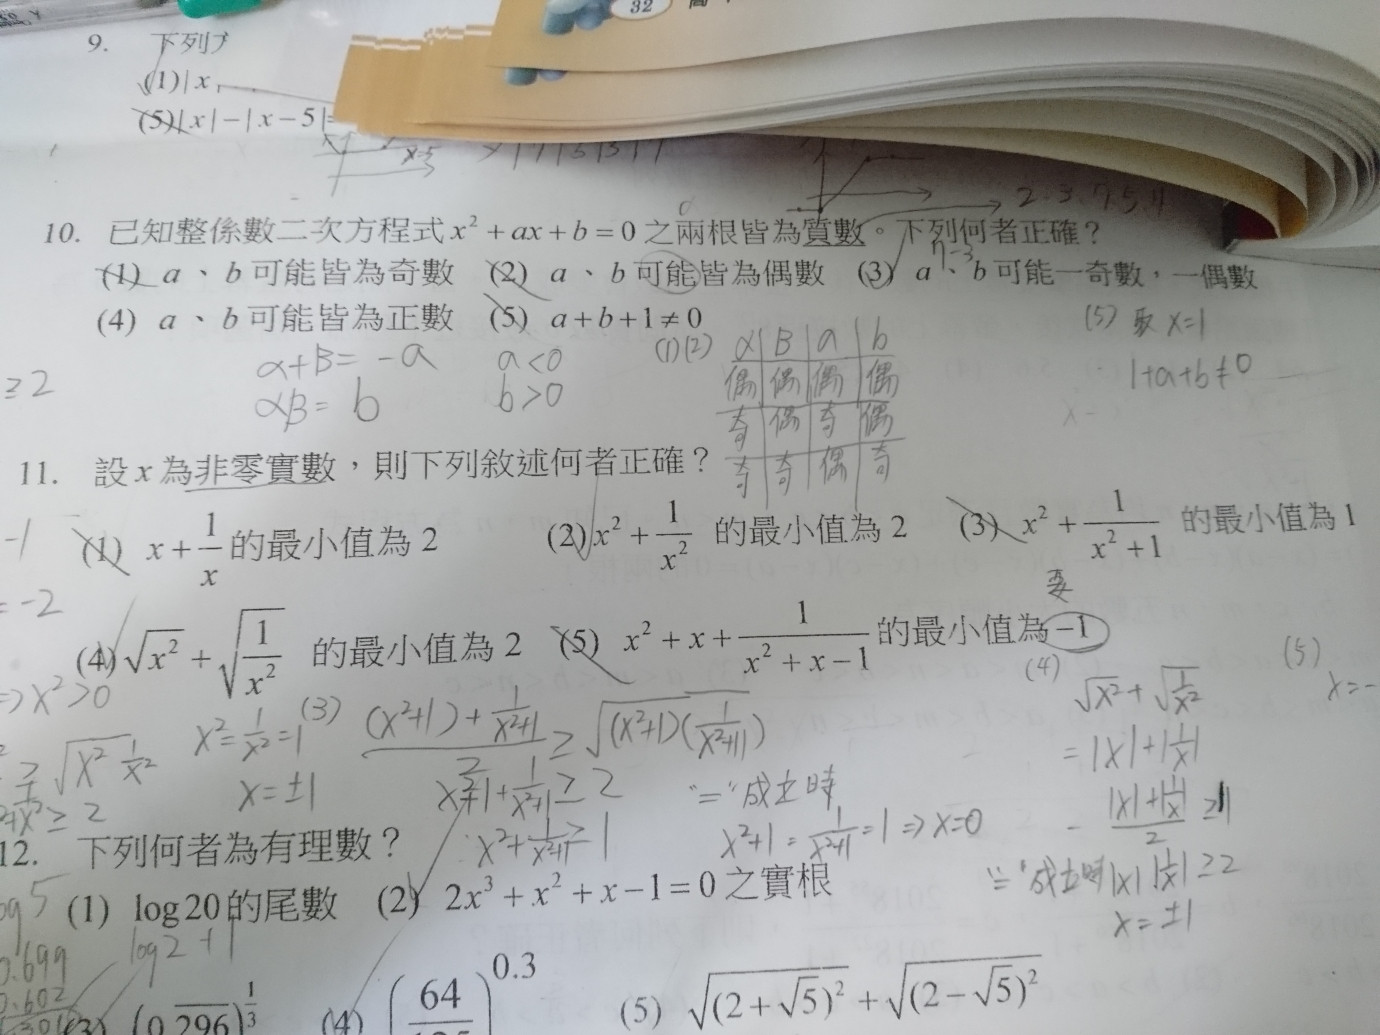 32
9. 下列
(1)|x
(5)|x|-|x-5|=
2.3.7.5.11
10. 已知整係數二次方程式 x² + ax + b = 0 之兩根皆為質數。下列何者正確？
(1) a、b 可能皆為奇數 (2) a、b 可能皆為偶數 (3) a、b 可能一奇數，一偶數
(4) a、b 可能皆為正數 (5) a+b+1≠0
(5) 取 x=1
1+a+b≠0
α+β= -a a<0
αβ= b b>0
(1)(2) α β a b
偶 偶 偶 偶
奇 偶 奇 偶
奇 奇 偶 奇
≥2
11. 設 x 為非零實數，則下列敘述何者正確？
(1) x+1/x 的最小值為 2 (2) x²+1/x² 的最小值為 2 (3) x²+1/(x²+1) 的最小值為 1
(4) √(x²)+√(1/x²) 的最小值為 2 (5) x²+x+1/(x²+x-1) 的最小值為 -1
⇒x²>0
x²=1/x²=1
x=±1
(3) ((x²+1)+1/(x²+1))/2 ≥ √((x²+1)(1/(x²+1)))
x²+1+1/(x²+1) ≥ 2
x²+1/(x²+1) ≥ 1
"="成立時
x²+1=1/(x²+1)=1⇒x=0
(4) √(x²)+√(1/x²)
=|x|+|1/x|
(|x|+|1/x|)/2 ≥1
"="成立時|x||1/x|≥2
x=±1
(5)
x=-
12. 下列何者為有理數？
(1) log20 的尾數 (2) 2x³+x²+x-1=0 之實根
log2+1
0.699
0.602
(3) (0.296)^(1/3) (4) (64/125)^0.3 (5) √((2+√5)²)+√((2-√5)²)